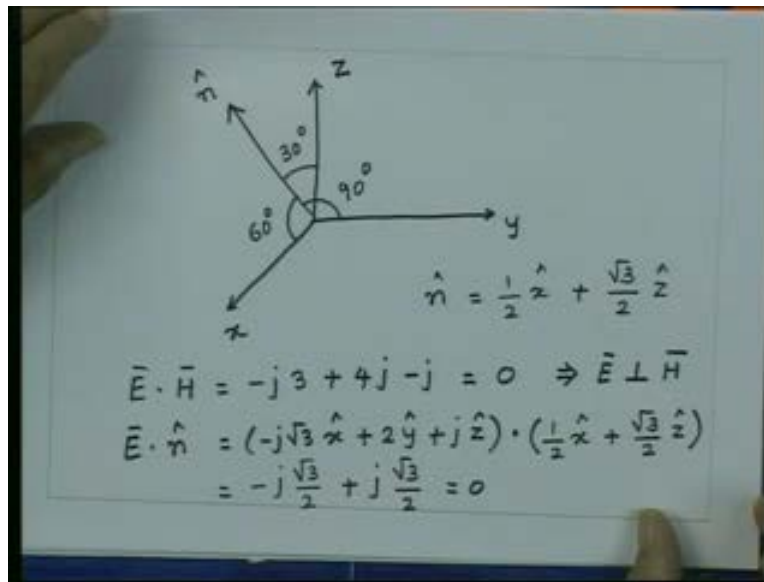 n̂
z
30°
90°
60°
y
x
n̂ = 1/2 x̂ + √3/2 ẑ
Ē · H̄ = -j3 + 4j - j = 0 ⇒ Ē ⊥ H̄
Ē · n̂ = (-j√3 x̂ + 2ŷ + jẑ) · (1/2 x̂ + √3/2 ẑ)
= -j √3/2 + j √3/2 = 0